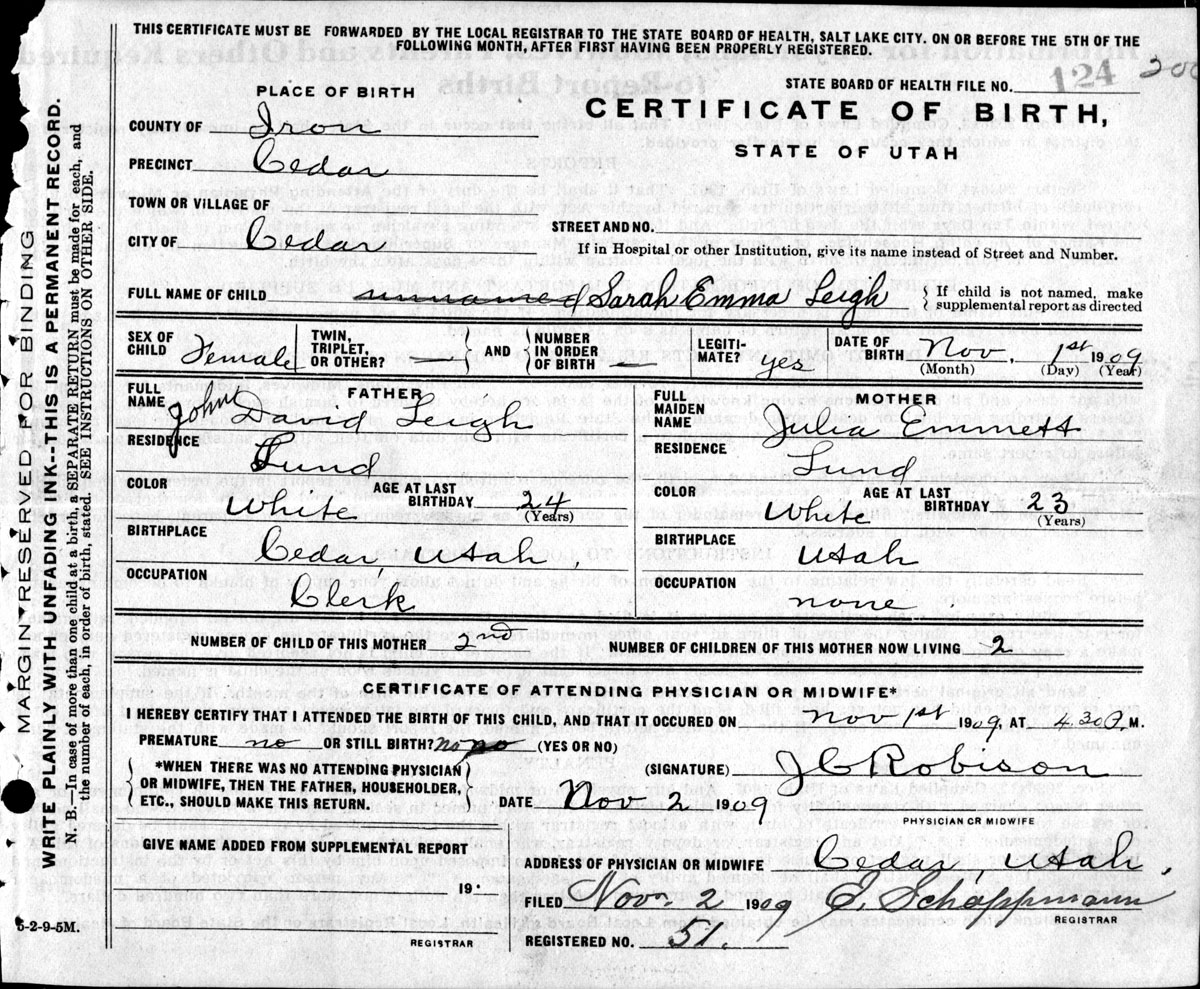 THIS CERTIFICATE MUST BE FORWARDED BY THE LOCAL REGISTRAR TO THE STATE BOARD OF HEALTH, SALT LAKE CITY. ON OR BEFORE THE 5TH OF THE
FOLLOWING MONTH, AFTER FIRST HAVING BEEN PROPERLY REGISTERED.
STATE BOARD OF HEALTH FILE NO. 124 200
PLACE OF BIRTH
CERTIFICATE OF BIRTH,
STATE OF UTAH
COUNTY OF Iron
PRECINCT Cedar
TOWN OR VILLAGE OF
STREET AND NO.
CITY OF Cedar
If in Hospital or other Institution, give its name instead of Street and Number.
FULL NAME OF CHILD unnamed Sarah Emma Leigh
If child is not named, make
supplemental report as directed
SEX OF CHILD Female
TWIN, TRIPLET, OR OTHER? —
AND
NUMBER IN ORDER OF BIRTH —
LEGITIMATE? yes
DATE OF BIRTH Nov. 1st 1909
(Month) (Day) (Year)
FATHER
FULL NAME John David Leigh
RESIDENCE Lund
COLOR White
AGE AT LAST BIRTHDAY 24
(Years)
BIRTHPLACE Cedar, Utah,
OCCUPATION Clerk
MOTHER
FULL MAIDEN NAME Julia Emmett
RESIDENCE Lund
COLOR White
AGE AT LAST BIRTHDAY 23
(Years)
BIRTHPLACE Utah
OCCUPATION none
NUMBER OF CHILD OF THIS MOTHER 2nd
NUMBER OF CHILDREN OF THIS MOTHER NOW LIVING 2
CERTIFICATE OF ATTENDING PHYSICIAN OR MIDWIFE*
I HEREBY CERTIFY THAT I ATTENDED THE BIRTH OF THIS CHILD, AND THAT IT OCCURED ON Nov 1st 1909, AT 4.30 P. M.
PREMATURE no OR STILL BIRTH? no no (YES OR NO)
*WHEN THERE WAS NO ATTENDING PHYSICIAN
OR MIDWIFE, THEN THE FATHER, HOUSEHOLDER,
ETC., SHOULD MAKE THIS RETURN.
(SIGNATURE) J C Robison
DATE Nov 2 1909
PHYSICIAN OR MIDWIFE
GIVE NAME ADDED FROM SUPPLEMENTAL REPORT
19
REGISTRAR
ADDRESS OF PHYSICIAN OR MIDWIFE Cedar, Utah.
FILED Nov 2 1909 E. Schoppmann
REGISTRAR
REGISTERED NO. 51.
5-2-9-5M.
MARGIN RESERVED FOR BINDING
WRITE PLAINLY WITH UNFADING INK--THIS IS A PERMANENT RECORD.
N. B.—In case of more than one child at a birth, a SEPARATE RETURN must be made for each, and
the number of each, in order of birth, stated. SEE INSTRUCTIONS ON OTHER SIDE.